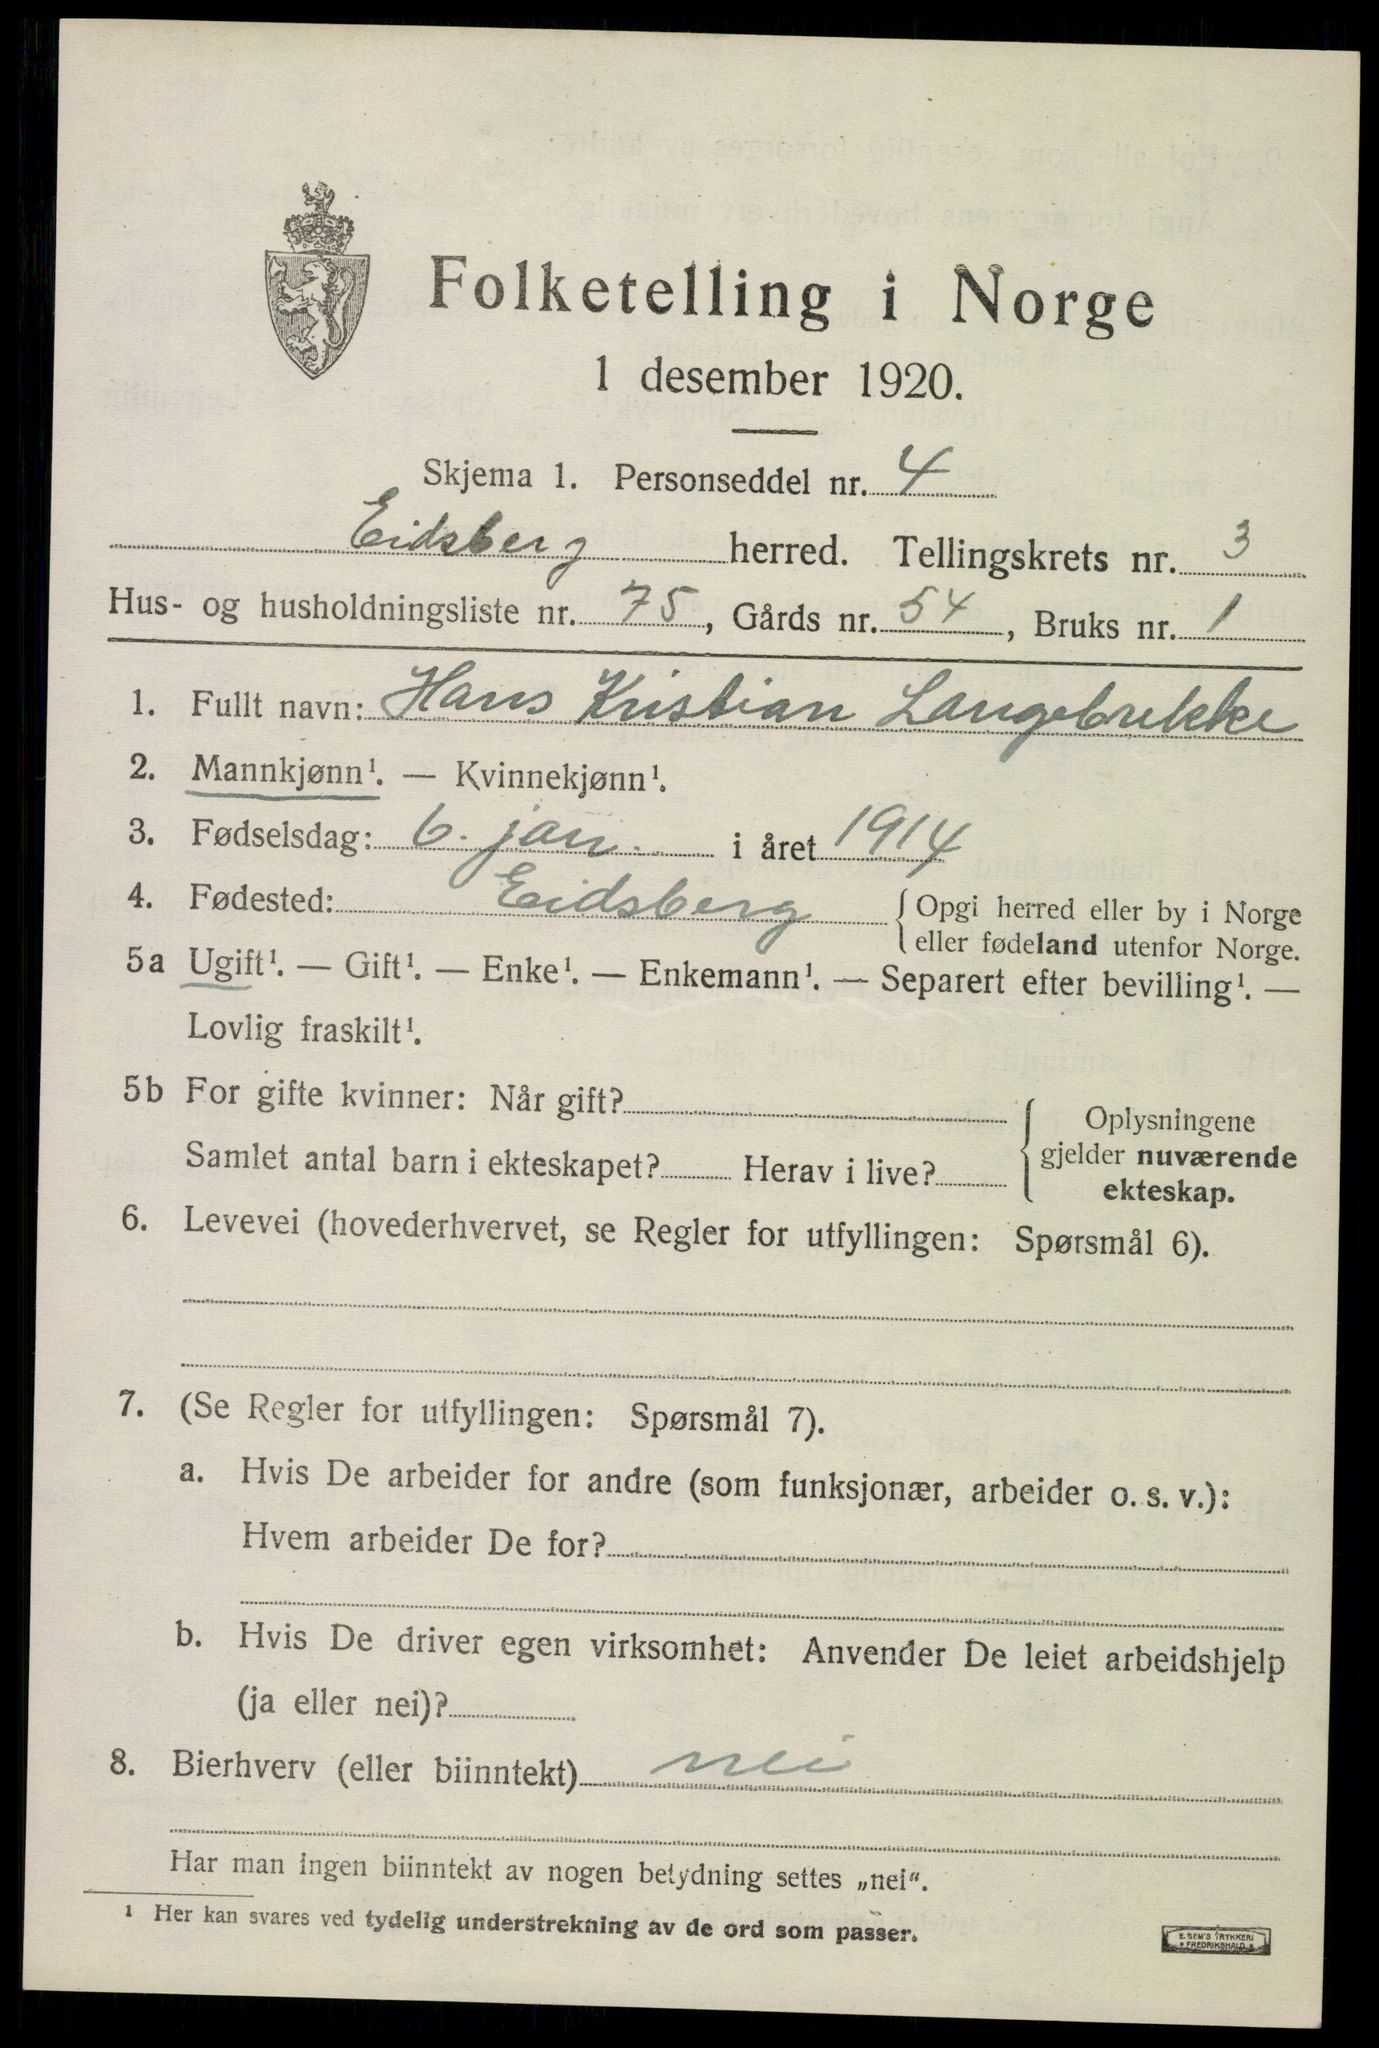 Folketelling i Norge
1 desember 1920.
Skjema 1. Personseddel nr. 4
Eidsberg herred. Tellingskrets nr. 3
Hus- og husholdningsliste nr. 75, Gårds nr. 54, Bruks nr. 1
1. Fullt navn: Hans Kristian Langebrekke
2. Mannkjønn¹. — Kvinnekjønn¹.
3. Fødselsdag: 6. jan. i året 1914
4. Fødested: Eidsberg { Opgi herred eller by i Norge
eller fødeland utenfor Norge.
5a Ugift¹. — Gift¹. — Enke¹. — Enkemann¹. — Separert efter bevilling¹. —
Lovlig fraskilt¹.
5b For gifte kvinner: Når gift? { Oplysningene
Samlet antal barn i ekteskapet? Herav i live? gjelder nuværende
ekteskap.
6. Levevei (hovederhvervet, se Regler for utfyllingen: Spørsmål 6).
7. (Se Regler for utfyllingen: Spørsmål 7).
a. Hvis De arbeider for andre (som funksjonær, arbeider o. s. v.):
Hvem arbeider De for?
b. Hvis De driver egen virksomhet: Anvender De leiet arbeidshjelp
(ja eller nei)?
8. Bierhverv (eller biinntekt) nei
Har man ingen biinntekt av nogen betydning settes „nei".
¹ Her kan svares ved tydelig understrekning av de ord som passer.
E. SEM'S TRYKKERI
FREDRIKSHALD